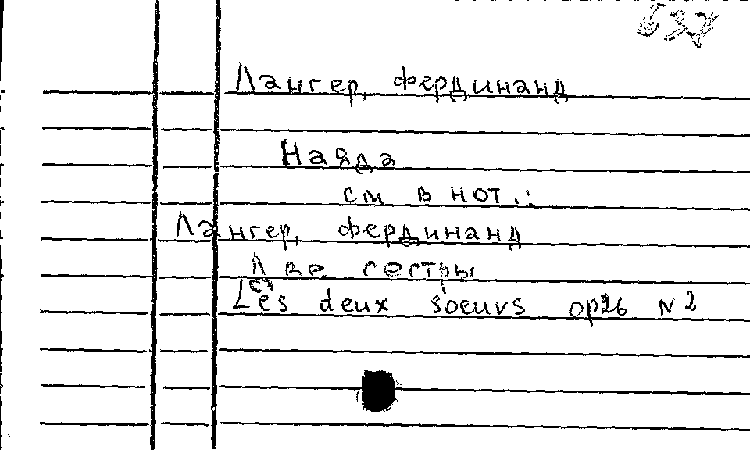 637
Лангер, Фердинанд
Наяда
см в нот.:
Лангер, Фердинанд
Две сестры
Les deux soeurs op26 N 2